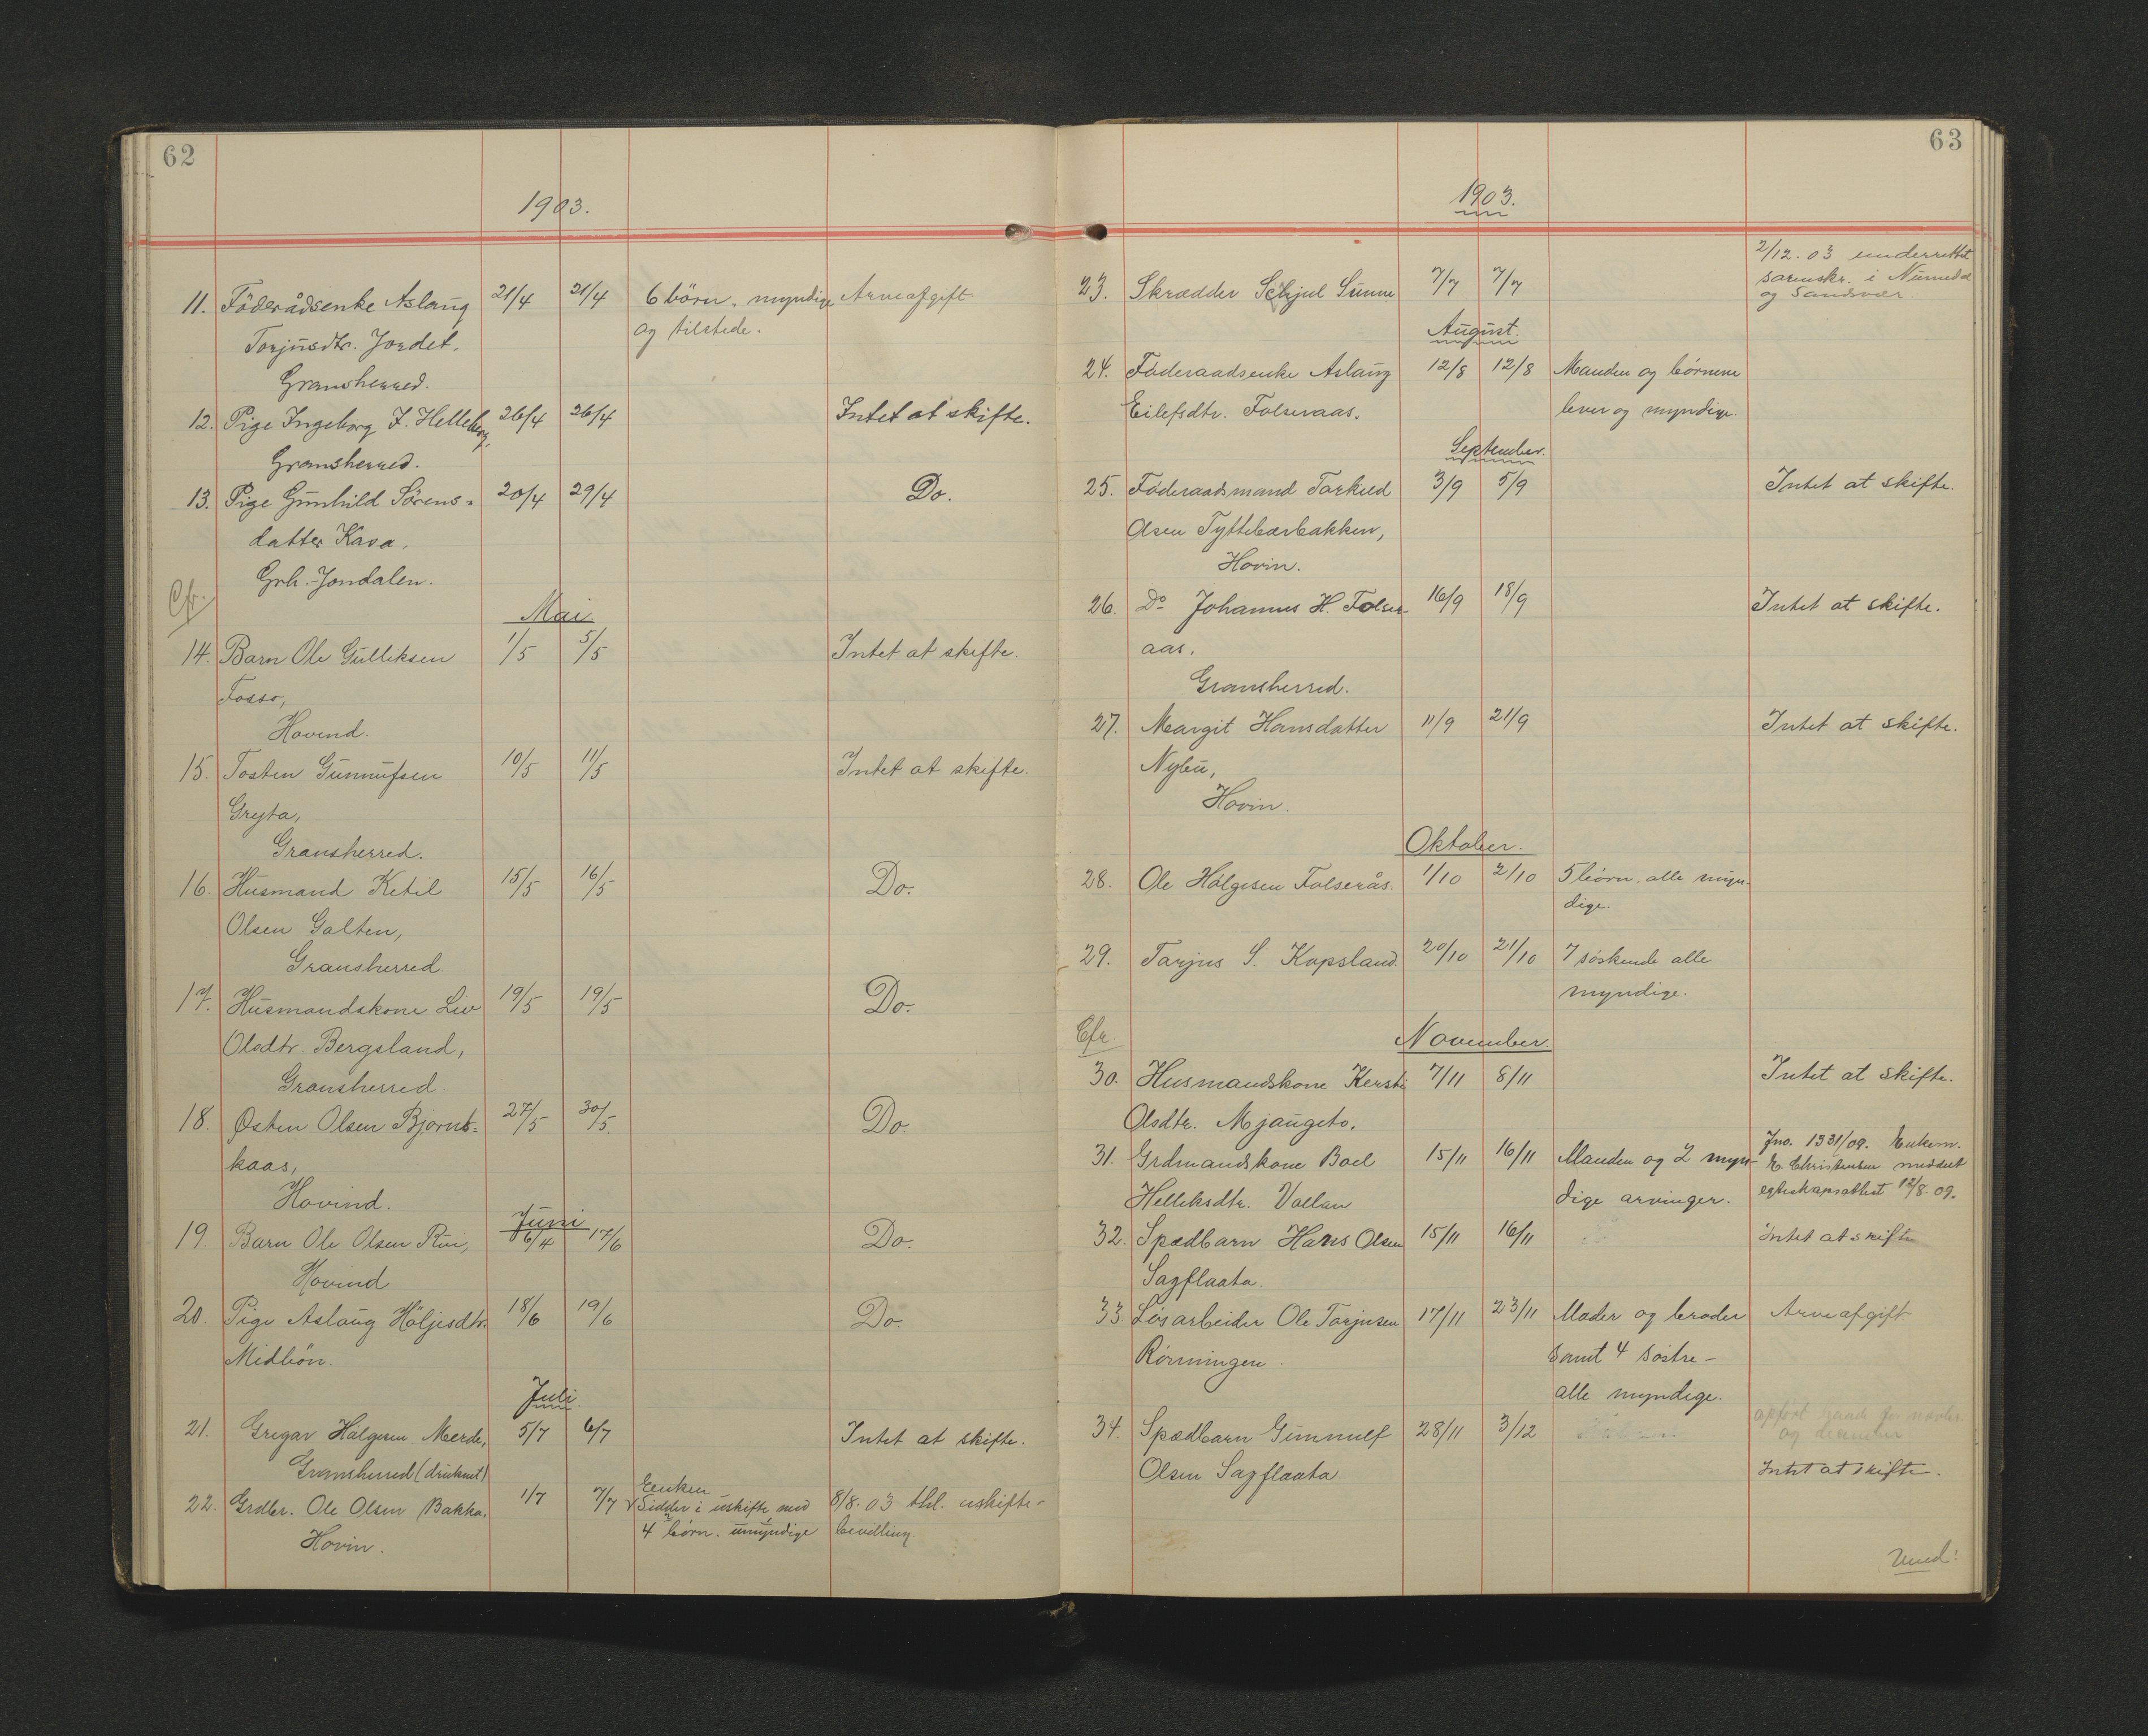 62
1903.
11. Föderådsenke Aslaug 21/4 21/4 6 börn, myndige Arveafgift
Torjusdtr. Jordet, og tilstede.
Gransherred.
12. Pige Ingeborg J. Helleberg, 26/4 26/4 Intet at skifte.
Gransherred.
13. Pige Gunhild Sörens- 20/4 29/4 Do.
datter Kasa,
Grh. Jondalen.
Cfr.
Mai
14. Barn Ole Gulliksen 1/5 5/5 Intet at skifte.
Fosso,
Hovend.
15. Tosten Gunnufsen 10/5 11/5 Intet at skifte.
Gryta,
Gransherred.
16. Husmand Ketil 15/5 16/5 Do.
Olsen Galten,
Gransherred.
17. Husmandskone Liv 19/5 19/5 Do.
Olsdtr. Bergsland,
Gransherred.
18. Østen Olsen Bjørnt- 27/5 30/5. Do.
kaas,
Hovind.
Juni
19. Barn Ole Olsen Rui, 6/4 17/6 Do.
Hovind
20. Pige Aslaug Höljesdtr. 18/6 19/6 Do.
Midbön.
Juli.
21. Gregar Halgesen Mærde, 5/7 6/7 Intet at skifte.
Gransherred (druknet)
22. Grdbr. Ole Olsen Bakka. 1/7 7/7 Enken
Sidder i uskifte med 8/8.03 thl. uskifte-
4 børn. umyndige bevilling
Hovin.
63
1903.
2/12.03 underrettet
sorenskr. i Numedal
og Sandsvær.
23. Skrædder Schjul Sunne 7/7 7/7
August.
24. Føderaadsenke Aslaug 12/8 12/8 Manden og børnene
Eilefsdtr. Folseraas. lever og myndige.
September.
25. Føderaadsmand Torkild 3/9 5/9 Intet at skifte.
Olsen Tyttebærbakken,
Hovin.
26. Do Johannes H. Folser- 16/9 18/9 Intet at skifte.
aas.
Gransherred.
27. Margit Hansdatter 11/9 21/9 Intet at skifte.
Nybu,
Hovin.
Oktober.
28. Ole Halgesen Folserås. 1/10 2/10 5 børn, alle myn-
dige.
29. Tarjus S. Kopsland. 20/10 21/10 7 søskende alle
myndige.
Cfr.
November.
30. Husmandskone Kersti 7/11 8/11 Intet at skifte.
Olsdtr. Mjaugeto.
31. Grdmandskone Boel 15/11 16/11 Manden og 2 myn- Jno. 1331/09. Enkem.
Helleksdtr. Vallan dige arvinger. E. Christensen meddelt
egteskapsattest 12/8.09.
32. Spædbarn Hans Olsen 15/11 16/11 intet at skifte
Sagflaata.
33. Løsarbeider Ole Torjusen 17/11 23/11 Moder og broder Arveafgift.
Rønningen. samt 4 søstre-
alle myndige.
34. Spædbarn Gunnulf 28/11 3/12
og
Olsen Sagflaata. Intet at skifte.
Vend!